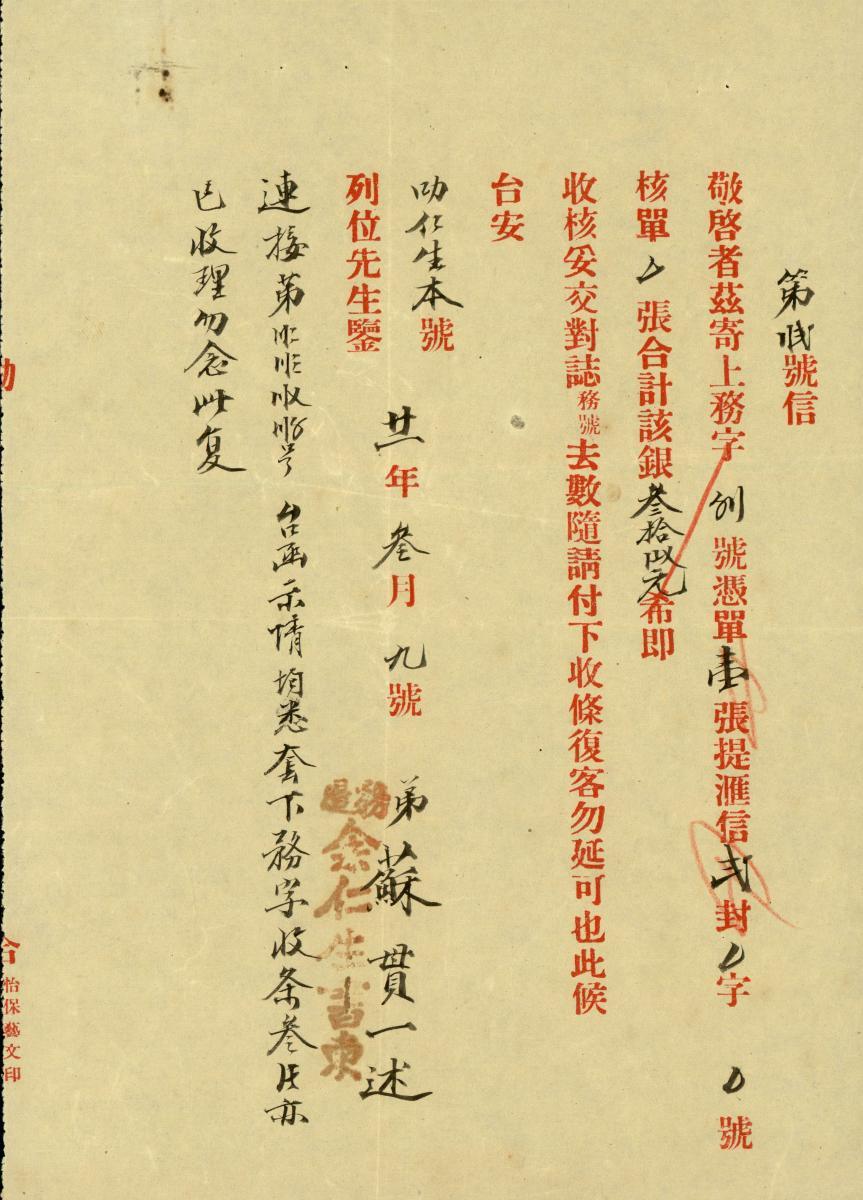 第弍號信
敬啓者茲寄上務字 號憑單壹張提滙信弍封 字 號
核單 張合計該銀叄拾 元希即
收核妥交對誌務號去數隨請付下收條復客勿延可也此候
台安
叻仁生本號
列位先生鑒
廿一年叁月九號
弟蘇貫一述
務邊余仁生書柬
連接第 号台函示情均悉套下務字收条叁 亦
已收理勿念此复
怡保藝文印